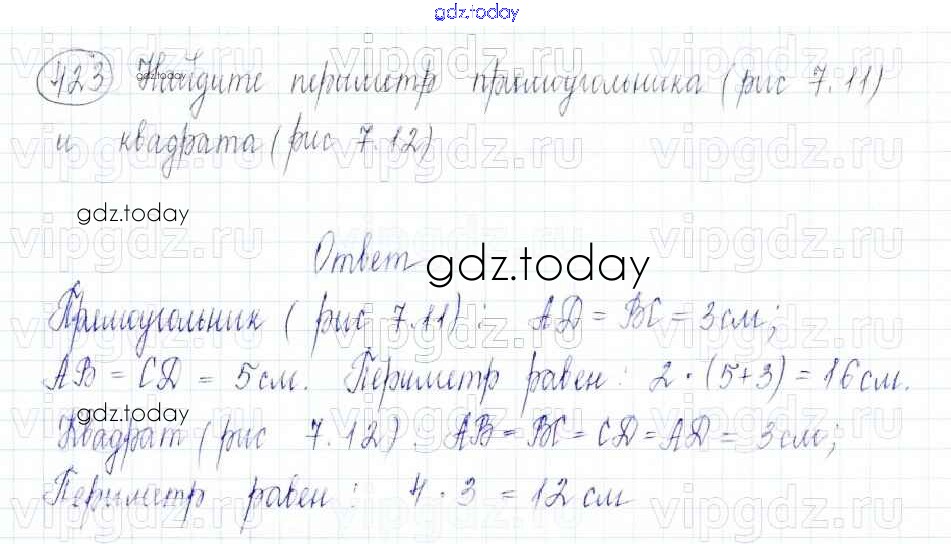 gdz.today
423 Найдите периметр прямоугольника (рис 7.11)
gdz.today
и квадрата (рис 7.12)
gdz.today
Ответ
gdz.today
Прямоугольник (рис 7.11): AD = BC = 3см;
AB = CD = 5см. Периметр равен: 2 · (5+3) = 16см.
gdz.today
Квадрат (рис 7.12) AB = BC = CD = AD = 3см;
Периметр равен: 4 · 3 = 12 см
vipgdz.ru